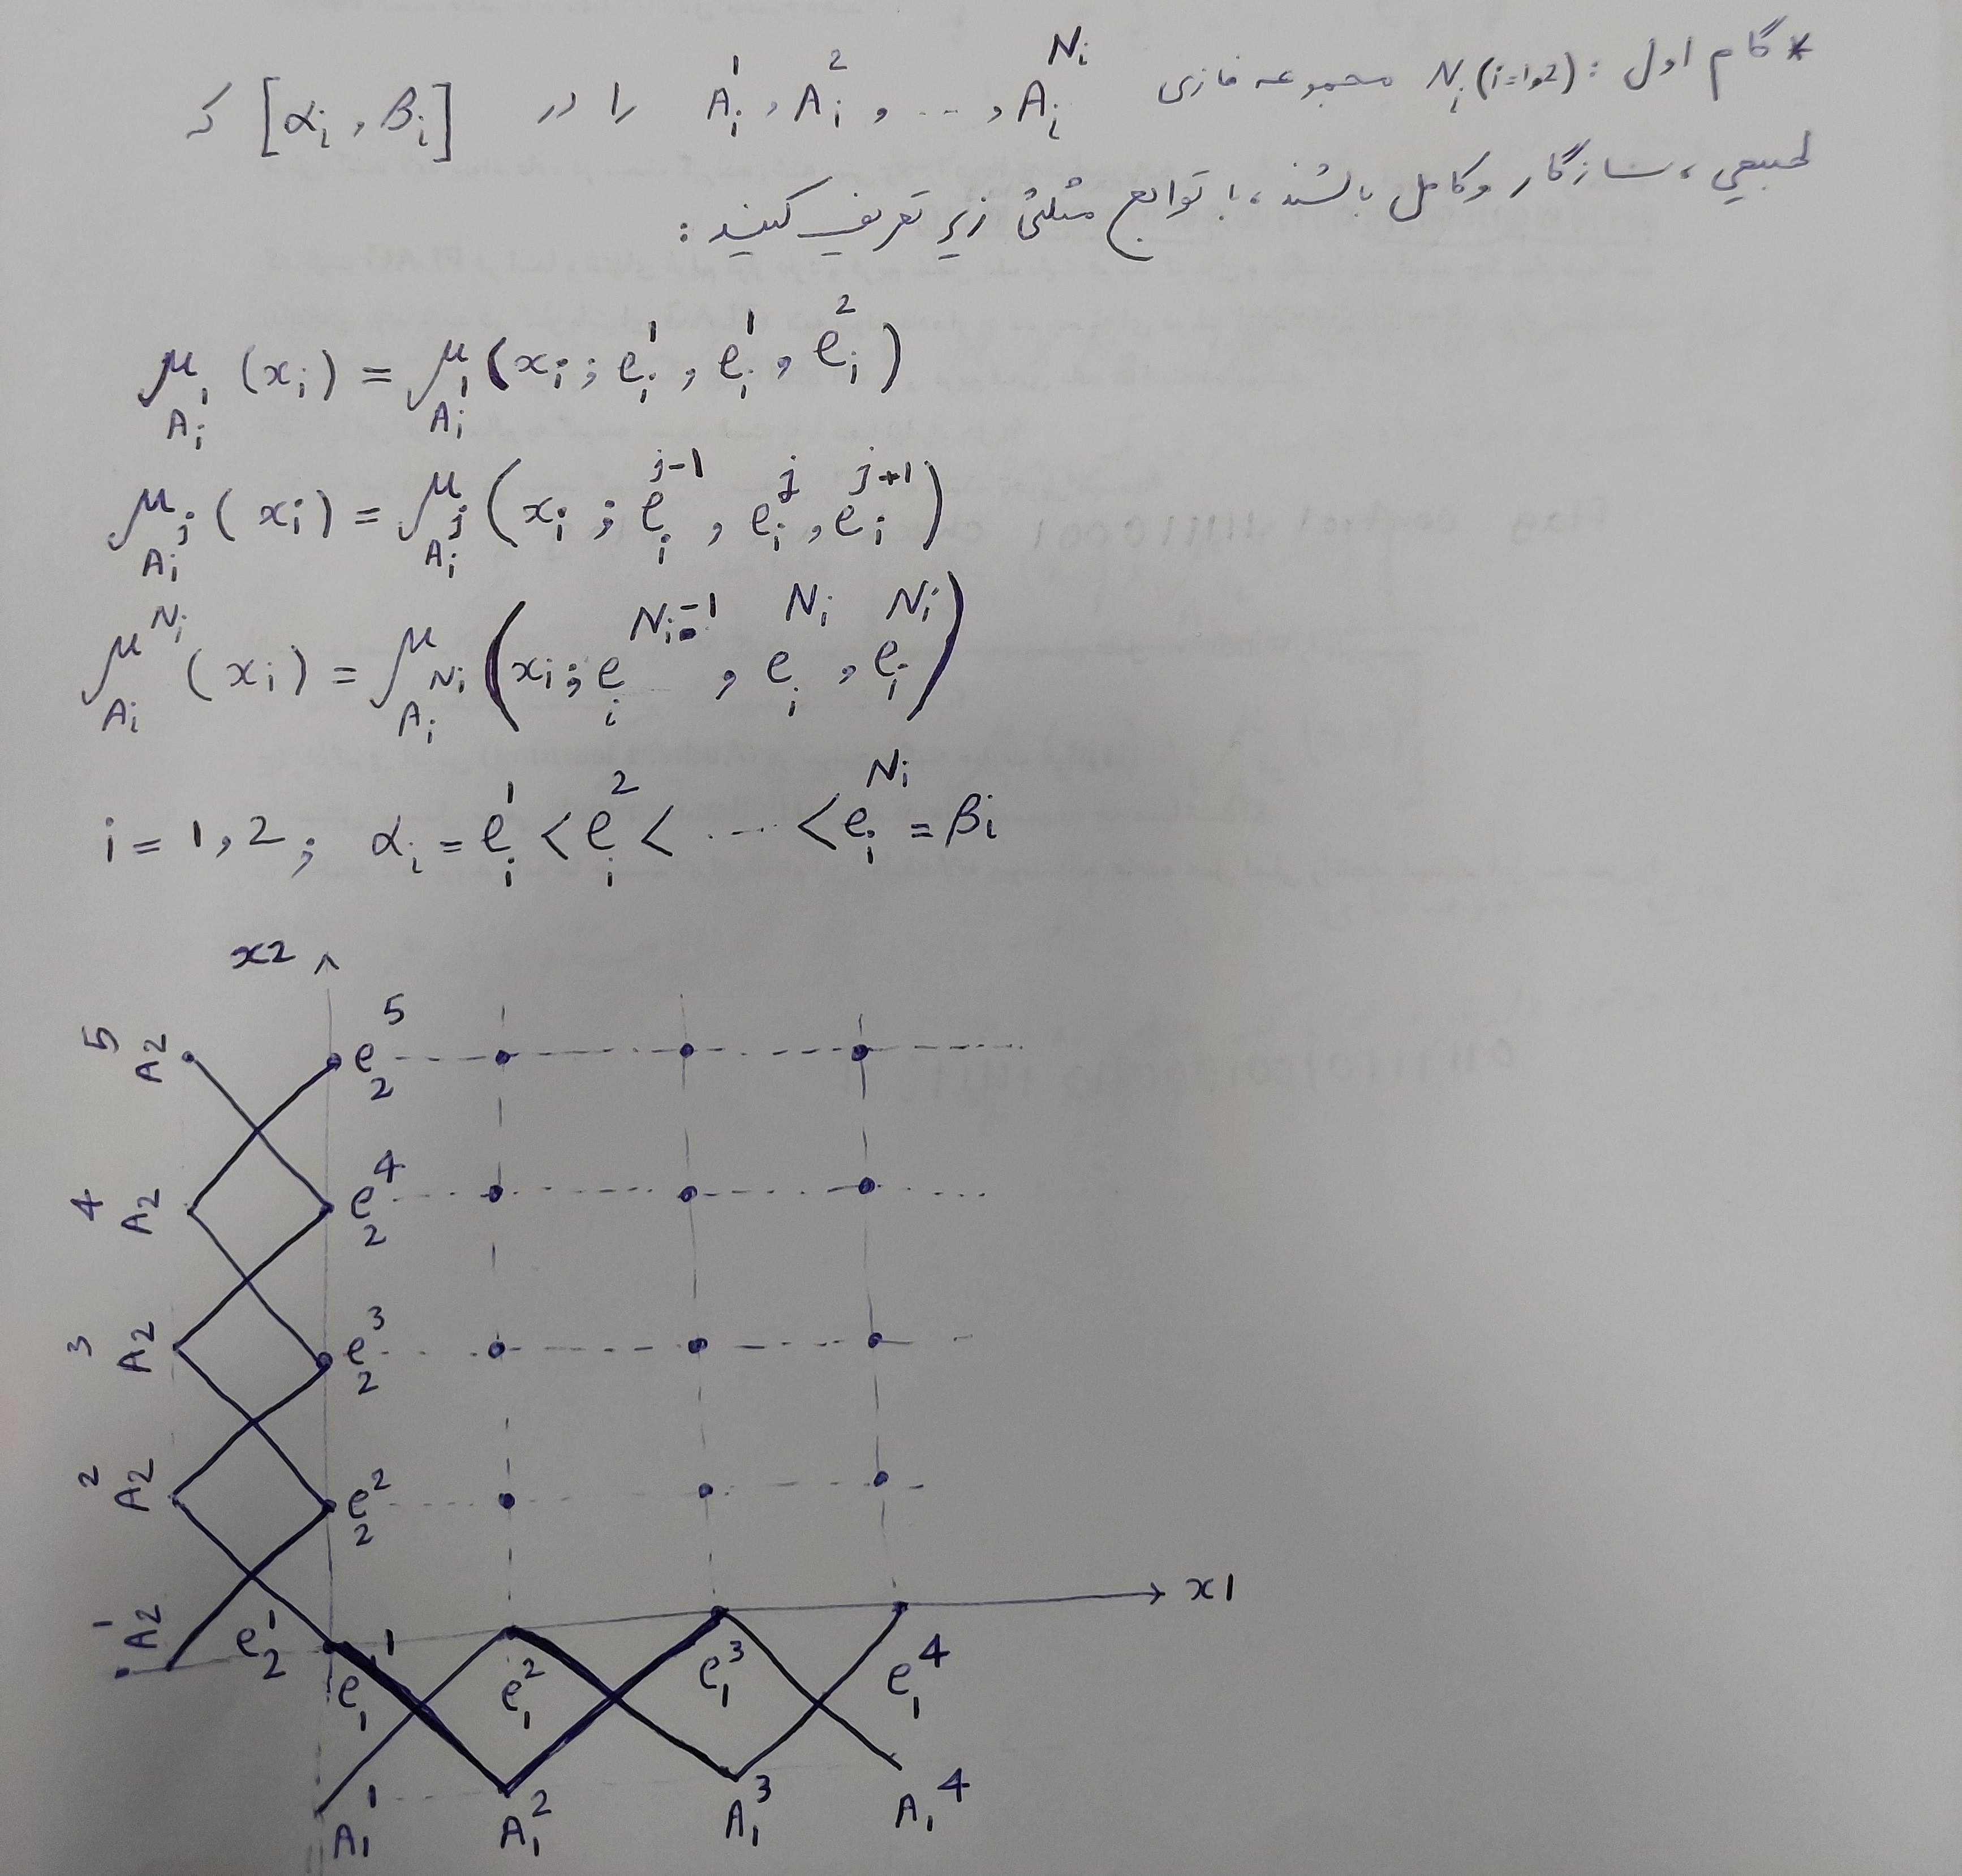 * گام اول : N_i (i=1,2) مجموعه فازی A_i^1 , A_i^2 , ... , A_i^{N_i} را در [α_i , β_i] که
طبیعی ، سازگار و کامل باشند ، با توابع مثلثی زیر تعریف کنید :
μ_{A_i^1} (x_i) = μ_{A_i^1} (x_i ; e_i^1 , e_i^1 , e_i^2)
μ_{A_i^j} (x_i) = μ_{A_i^j} (x_i ; e_i^{j-1} , e_i^j , e_i^{j+1})
μ_{A_i}^{N_i} (x_i) = μ_{A_i^{N_i}} (x_i ; e_i^{N_i-1} , e_i^{N_i} , e_i^{N_i})
i = 1, 2 ; α_i = e_i^1 < e_i^2 < ... < e_i^{N_i} = β_i
x2
A_2^5 e_2^5
A_2^4 e_2^4
A_2^3 e_2^3
A_2^2 e_2^2
x1
A_2^1 e_2^1 e_1^1 e_1^2 e_1^3 e_1^4
A_1^1 A_1^2 A_1^3 A_1^4